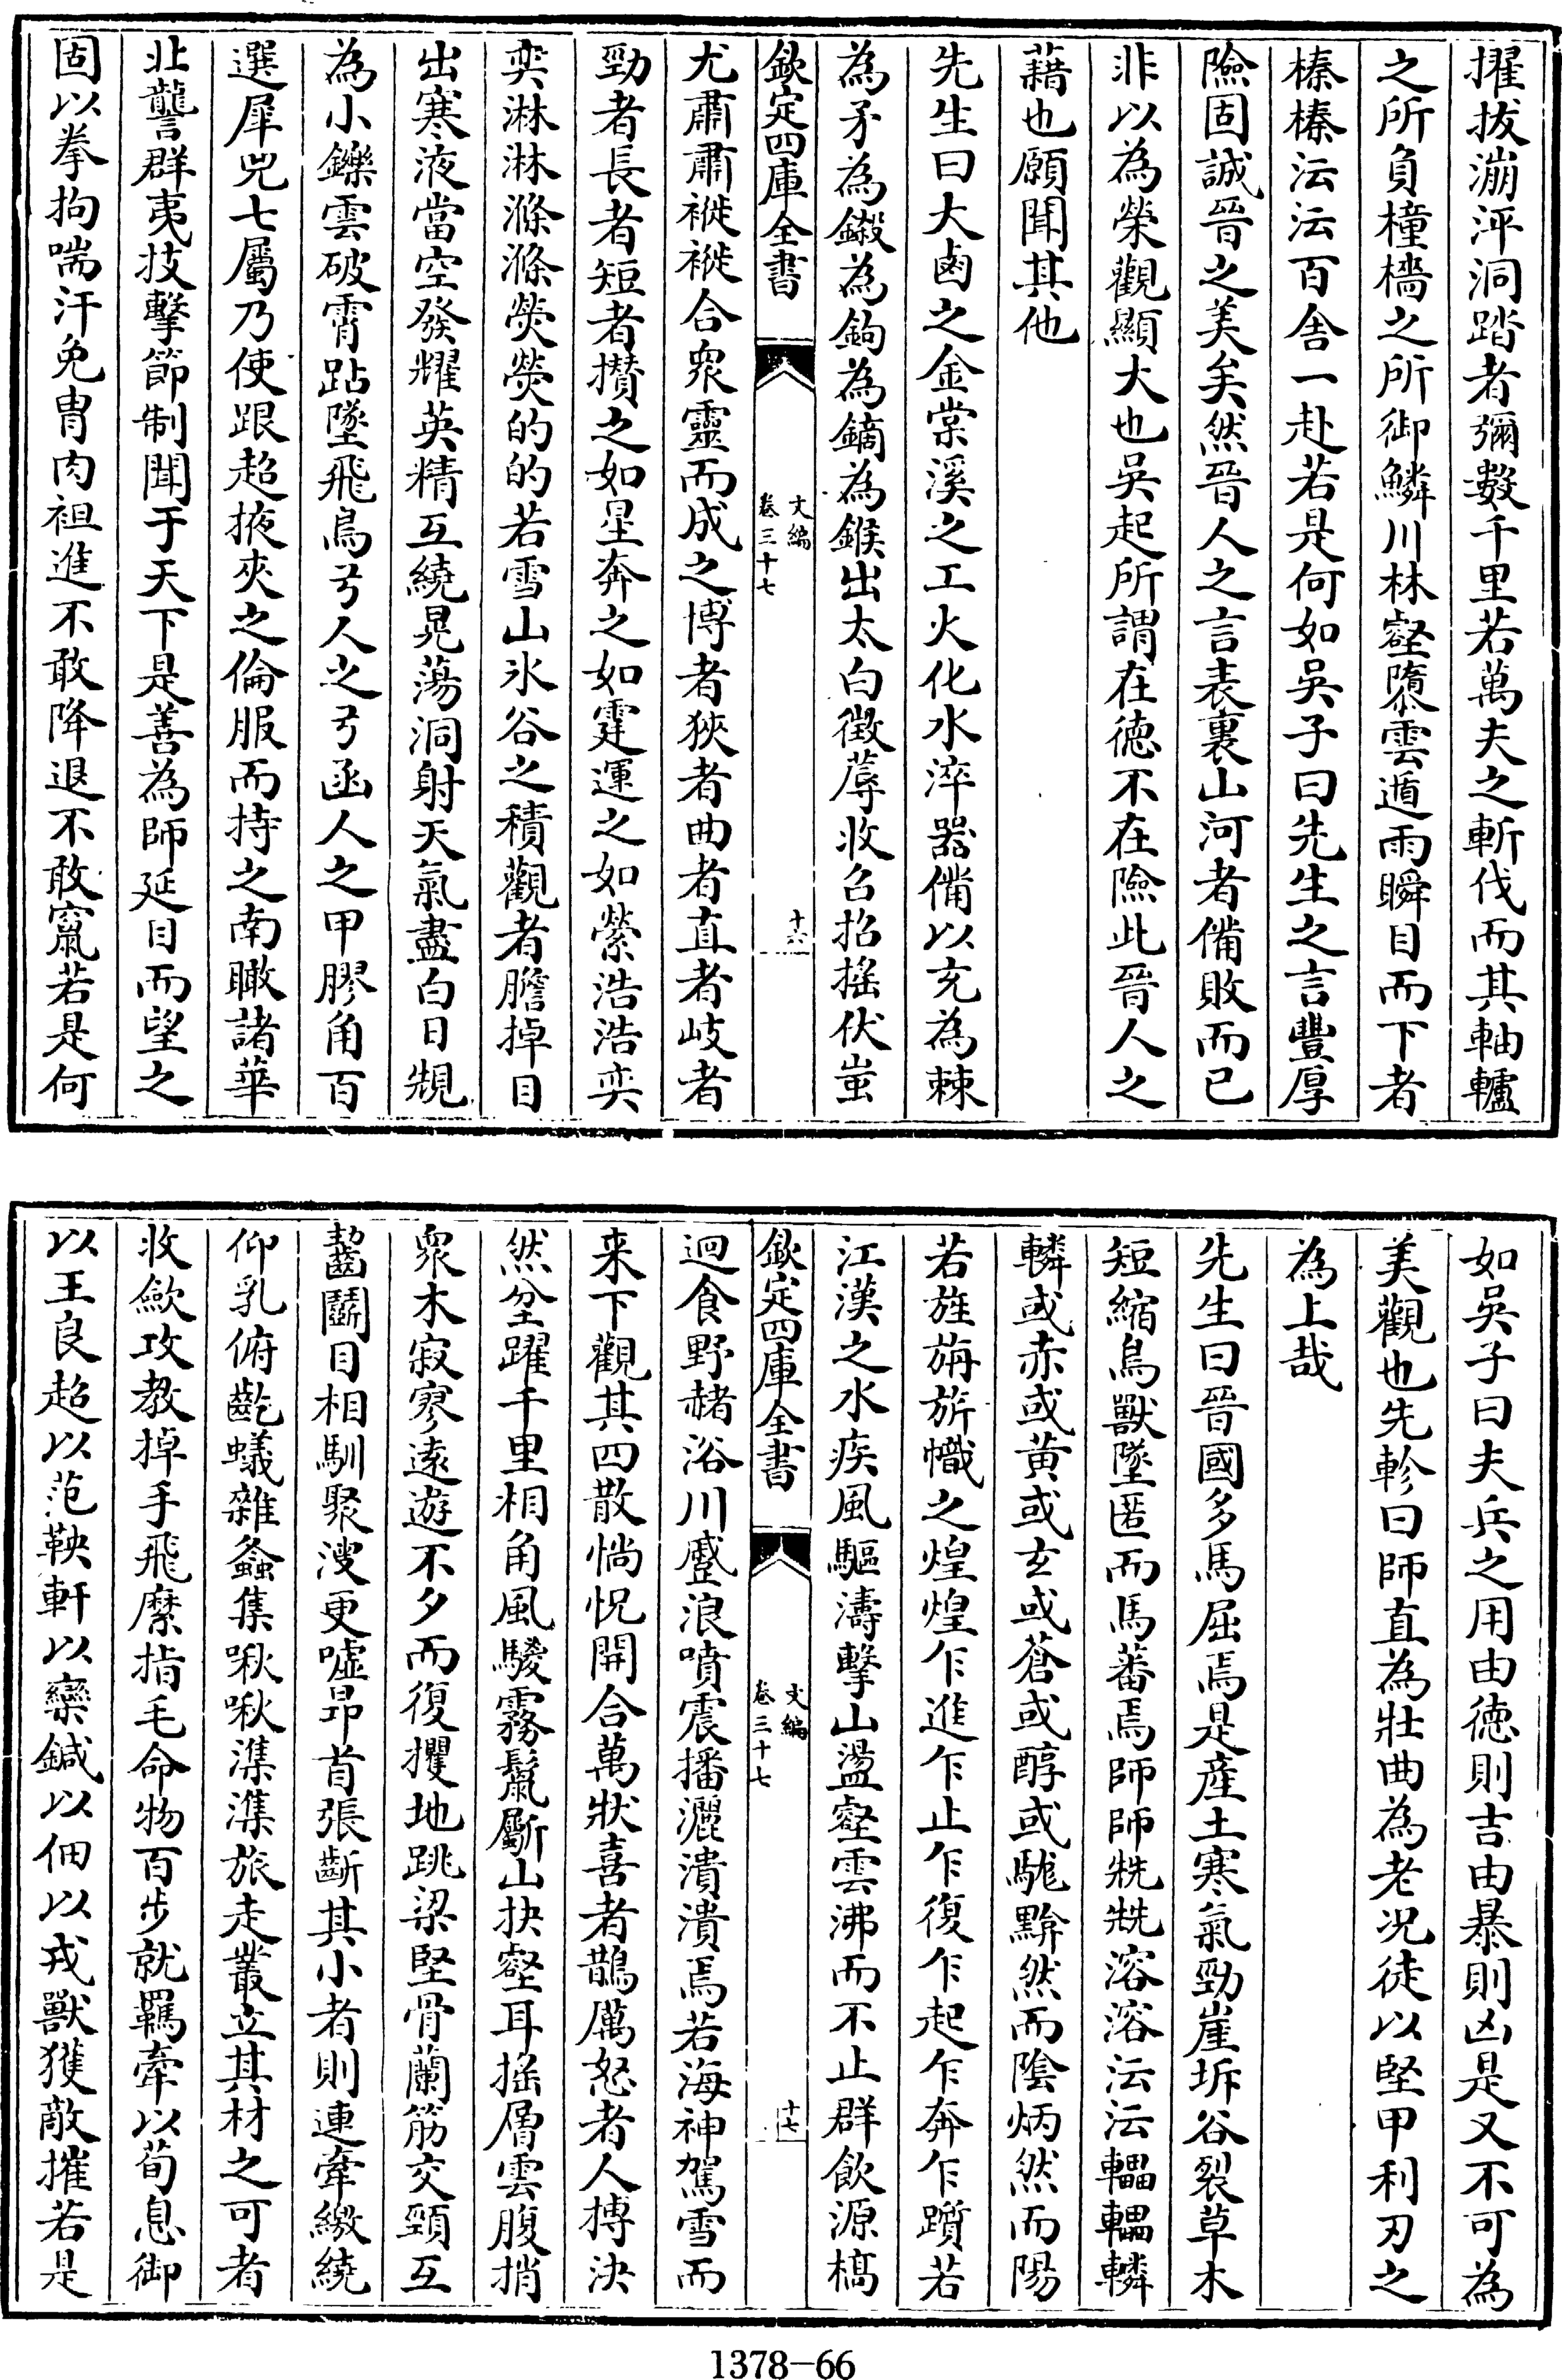 擢拔㶇泙洞踏者彌數千里若萬夫之斬伐而其軸轤
之所負橦檣之所御鱗川林壑隳雲遁雨瞬目而下者
榛榛沄沄百舎一赴若是何如吳子曰先生之言豐厚
險固誠晉之美矣然晉人之言表裏山河者備敗而已
非以為榮觀顯大也吳起所謂在徳不在險此晉人之
藉也願聞其他
先生曰大鹵之金棠溪之工火化水淬器備以充為棘
為矛為鎩為鉤為鏑為鍭出太白徵蓐收召招搖伏蚩
欽定四庫全書
文編
卷三十七
十六
尤肅肅褷褷合衆靈而成之博者狹者曲者直者岐者
勁者長者短者攢之如星奔之如霆運之如縈浩浩奕
奕淋淋滌滌熒熒的的若雪山氷谷之積觀者膽掉目
出寒液當空發耀英精互繞晃蕩洞射天氣盡白日規
為小鑠雲破霄跕墜飛鳥弓人之弓函人之甲膠角百
選犀兕七屬乃使跟超掖夾之倫服而持之南瞰諸華
北讋群夷技擊節制聞于天下是善為師延目而望之
固以拳拘喘汗免冑肉袒進不敢降退不敢竄若是何
如吳子曰夫兵之用由徳則吉由暴則凶是又不可為
美觀也先軫曰師直為壯曲為老况徒以堅甲利刃之
為上哉
先生曰晉國多馬屈焉是産土寒氣勁崖坼谷裂草木
短縮鳥獸墜匿而馬蕃焉師師兟兟溶溶沄沄轠轠轔
轔或赤或黄或玄或蒼或醇或駹黭然而陰炳然而陽
若旌旃旂幟之煌煌乍進乍止乍復乍起乍奔乍躓若
江漢之水疾風驅濤擊山盪壑雲沸而不止群飲源槁
欽定四庫全書
文編
卷三十七
十七
迴食野赭浴川蹙浪噴震播灑潰潰焉若海神駕雪而
来下觀其四散惝怳開合萬狀喜者鵲厲怒者人搏決
然坌躍千里相角風騣霧鬛斸山抉壑耳搖層雲腹捎
衆木寂寥逺遊不夕而復攫地跳梁堅骨蘭筋交頸互
齧鬬目相馴聚溲更噓昂首張齗其小者則連牽繳繞
仰乳俯齕蟻雜螽集啾啾潗潗旅走叢立其材之可者
收歛攻教掉手飛縻指毛命物百步就羈牽以荀息御
以王良超以范鞅軒以欒鍼以佃以戎獸獲敵摧若是
1378-66